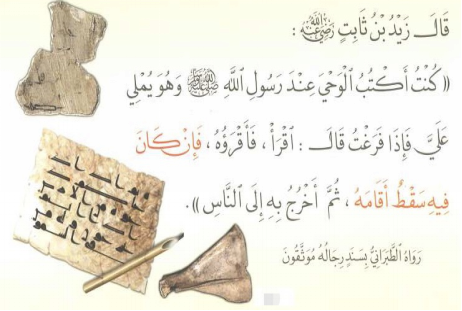 قَالَ زَيْدُ بْنُ ثَابِتٍ رَضِيَ اللَّهُ عَنْهُ :
(( كُنْتُ أَكْتُبُ الْوَحْيَ عِنْدَ رَسُولِ اللَّهِ ﷺ وَهُوَ يُمْلِي
عَلَيَّ فَإِذَا فَرَغْتُ قَالَ : اقْرَأْ ، فَأَقْرَؤُهُ ، فَإِنْ كَانَ
فِيهِ سَقْطٌ أَقَامَهُ ، ثُمَّ أَخْرُجُ بِهِ إِلَى النَّاسِ )).
رَوَاهُ الطَّبَرَانِيُّ بِسَنَدٍ رِجَالُهُ مُوَثَّقُونَ